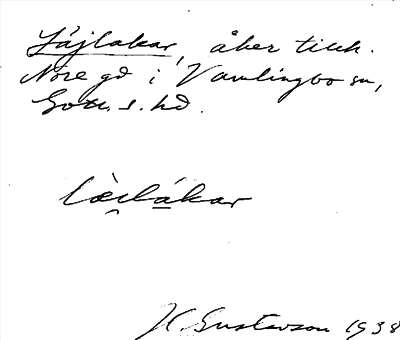 Läjlakar, åker tillh.
Nore gd i Vamlingbo sn,
Gotl. s. hd.
H. Gustavson 1938